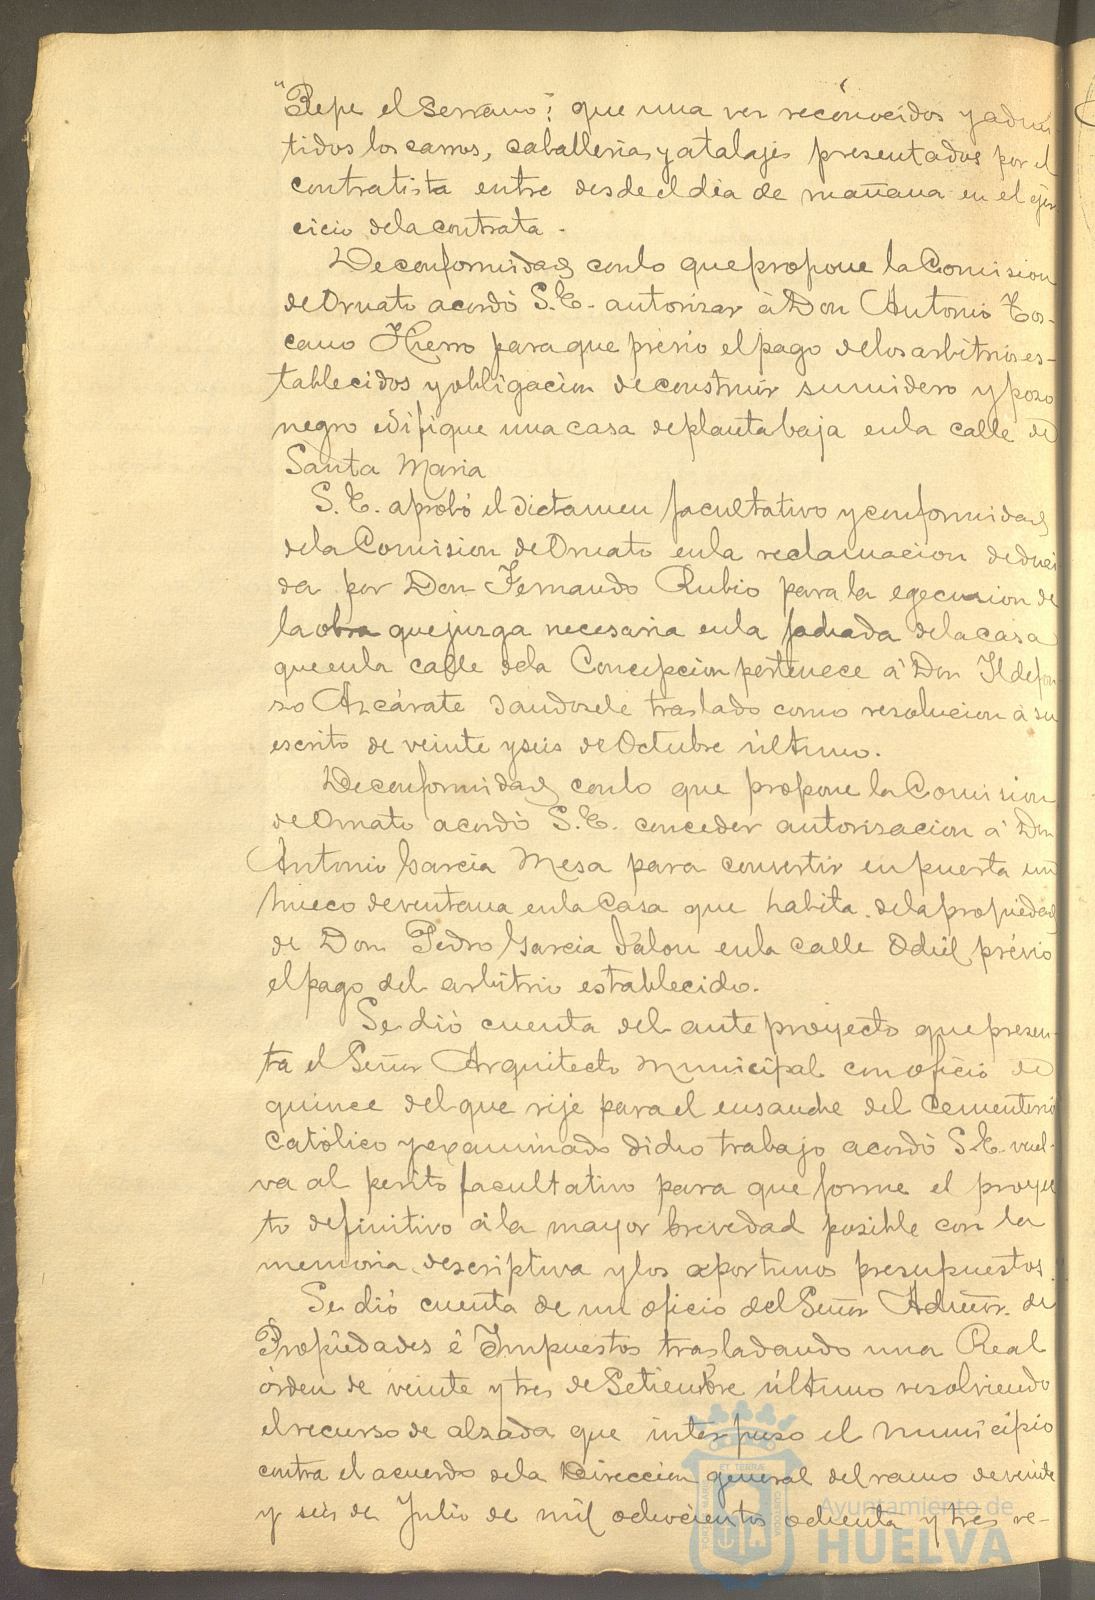 "Pepe el Serrano"; que una vez reconocidos y admi-
tidos los carros, caballerias y atalajes presentados por el
contratista entre desde el dia de mañana en el ejer
cicio de la contrata.
De conformidad con lo que propone la Comision
de Ornato acordó S.E. autorizar á Don Antonio Tos-
cano Hierro para que prévio el pago de los arbitrios es-
tablecidos y obligacion de construir sumidero y pozo
negro edifique una casa de planta baja en la calle de
Santa Maria
S.E. aprobó el dictamen facultativo y conformidad
de la Comision de Ornato en la reclamacion deduci
da por Don Fernando Rubio para la egecucion de
la obra que juzga necesaria en la fachada de la casa
que en la calle de la Concepcion pertenece á Don Ildefon
so Azcárate dandosele traslado como resolucion á su
escrito de veinte y seis de Octubre último.
De conformidad con lo que propone la Comision
de Ornato acordó S.E. conceder autorizacion á Don
Antonio Garcia Mesa para convertir en puerta un
hueco de ventana en la Casa que habita de la propiedad
de Don Pedro Garcia Jalon en la calle Odiel prévio
el pago del arbitrio establecido.
Se dió cuenta del ante proyecto que presen-
ta el Señor Arquitecto Municipal con oficio de
quince del que rije para el ensanche del Cementerio
Católico y examinado dicho trabajo acordó S.E. vuel-
va al perito facultativo para que forme el proyec
to definitivo á la mayor brevedad posible con la
memoria descriptiva y los oportunos presupuestos.
Se dió cuenta de un oficio del Señor Admor. de
Propiedades é Impuestos trasladando una Real
órden de veinte y tres de Setiembre último resolviendo
el recurso de alzada que interpuso el Municipio
contra el acuerdo de la Direccion general del ramo de veinte
y seis de Julio de mil ochocientos ochenta y tres re-
Ayuntamiento de
HUELVA